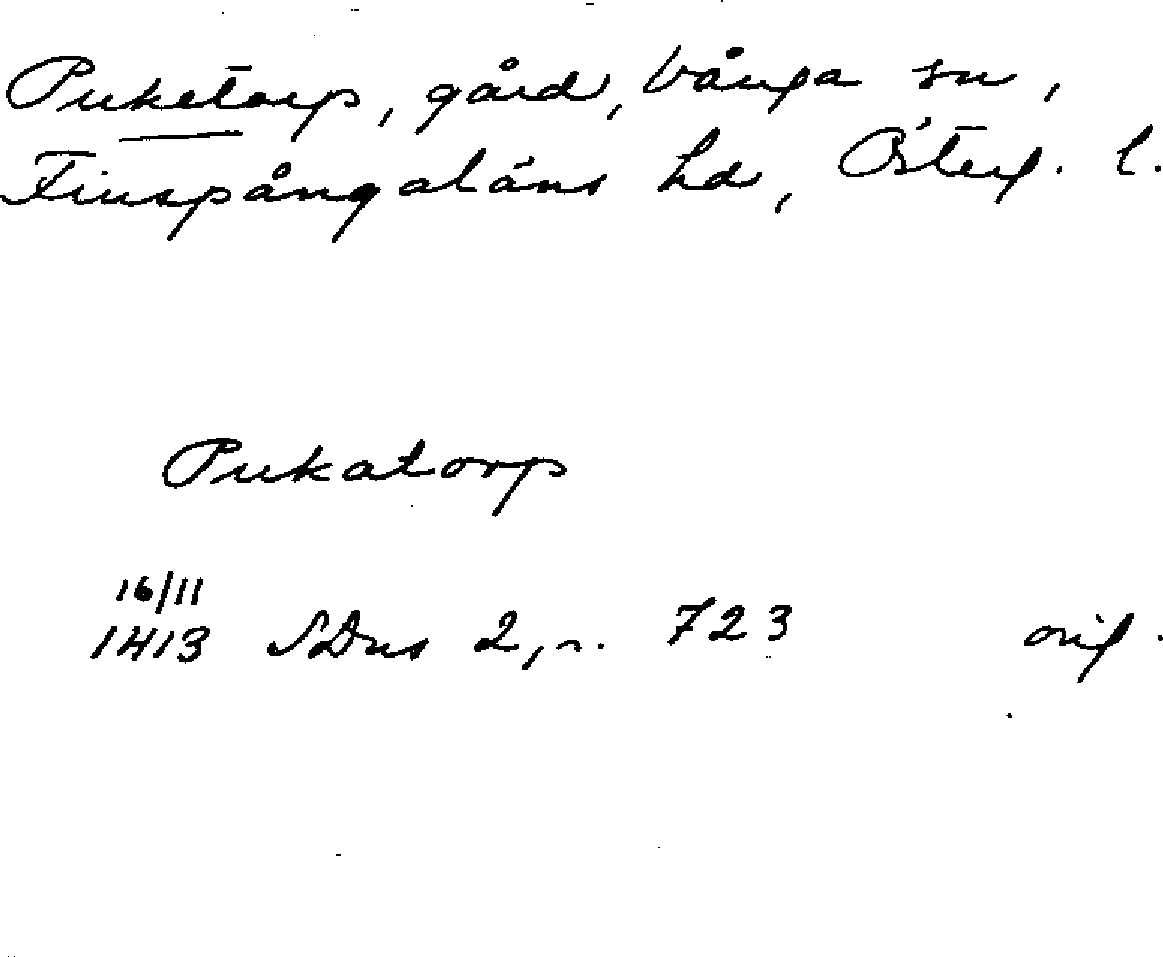 Puketorp, gård, Vånga sn,
Finspångaläns hd, Österg. l.
Pukatorp
16/11
1413 SDns 2, n. 723 orig.